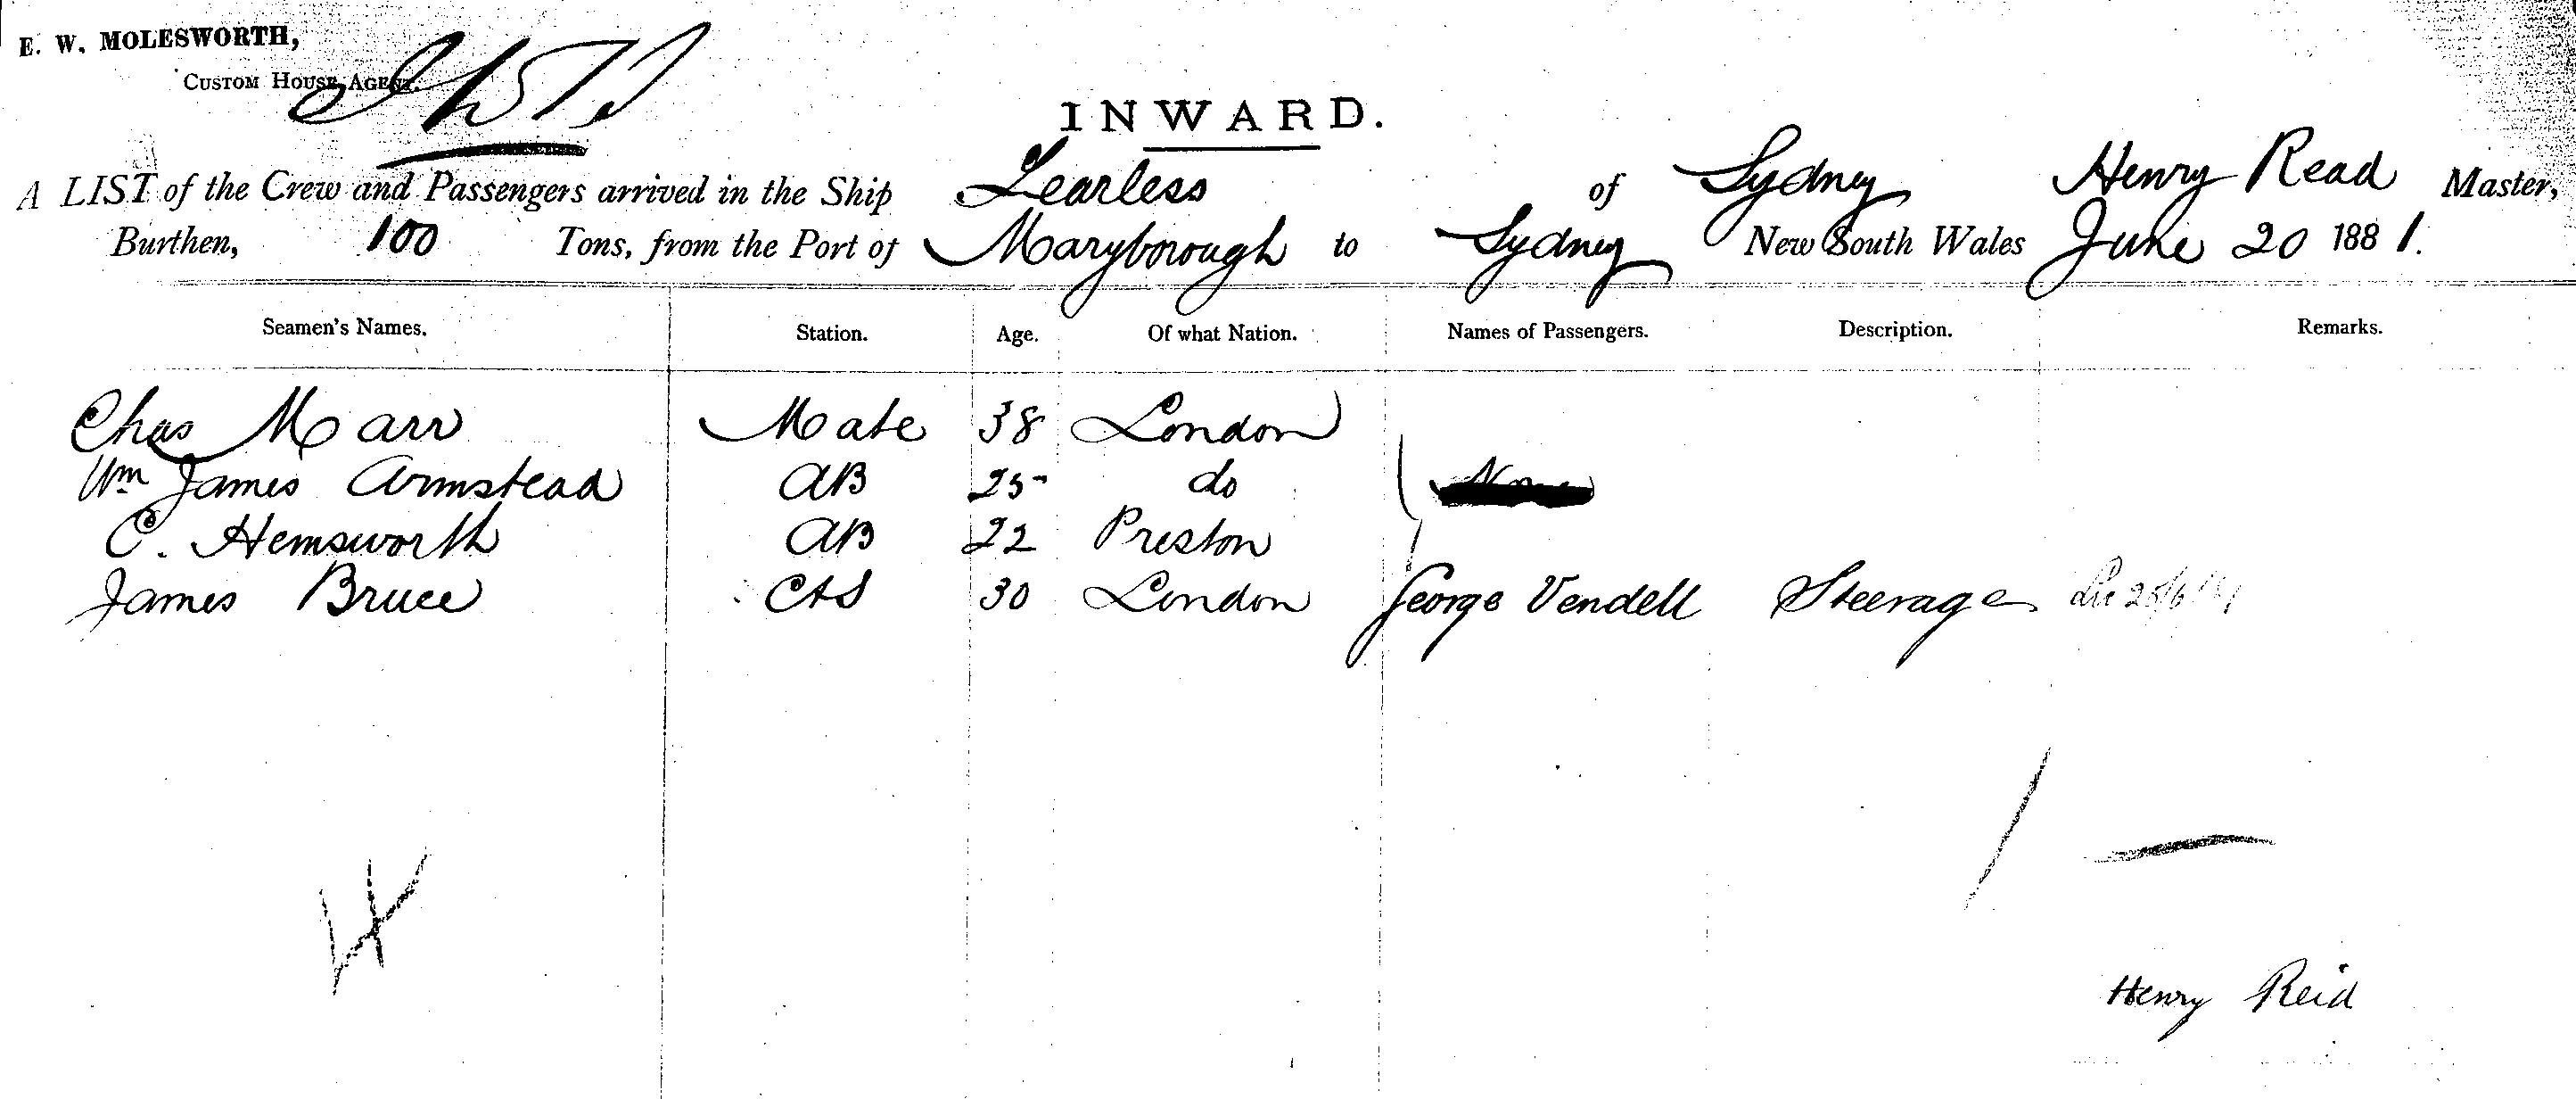 E. W. MOLESWORTH,
CUSTOM HOUSE AGENT.
INWARD.
A LIST of the Crew and Passengers arrived in the Ship Fearless of Sydney Henry Read Master,
Burthen, 100 Tons, from the Port of Maryborough to Sydney New South Wales June 20 1881.
Seamen's Names. Station. Age. Of what Nation. Names of Passengers. Description. Remarks.
Chas Marr Mate 38 London
Wm James Armstead AB 25 do
C. Hemsworth AB 22 Preston
James Bruce C&S 30 London George Vendell Steerage
Henry Reid